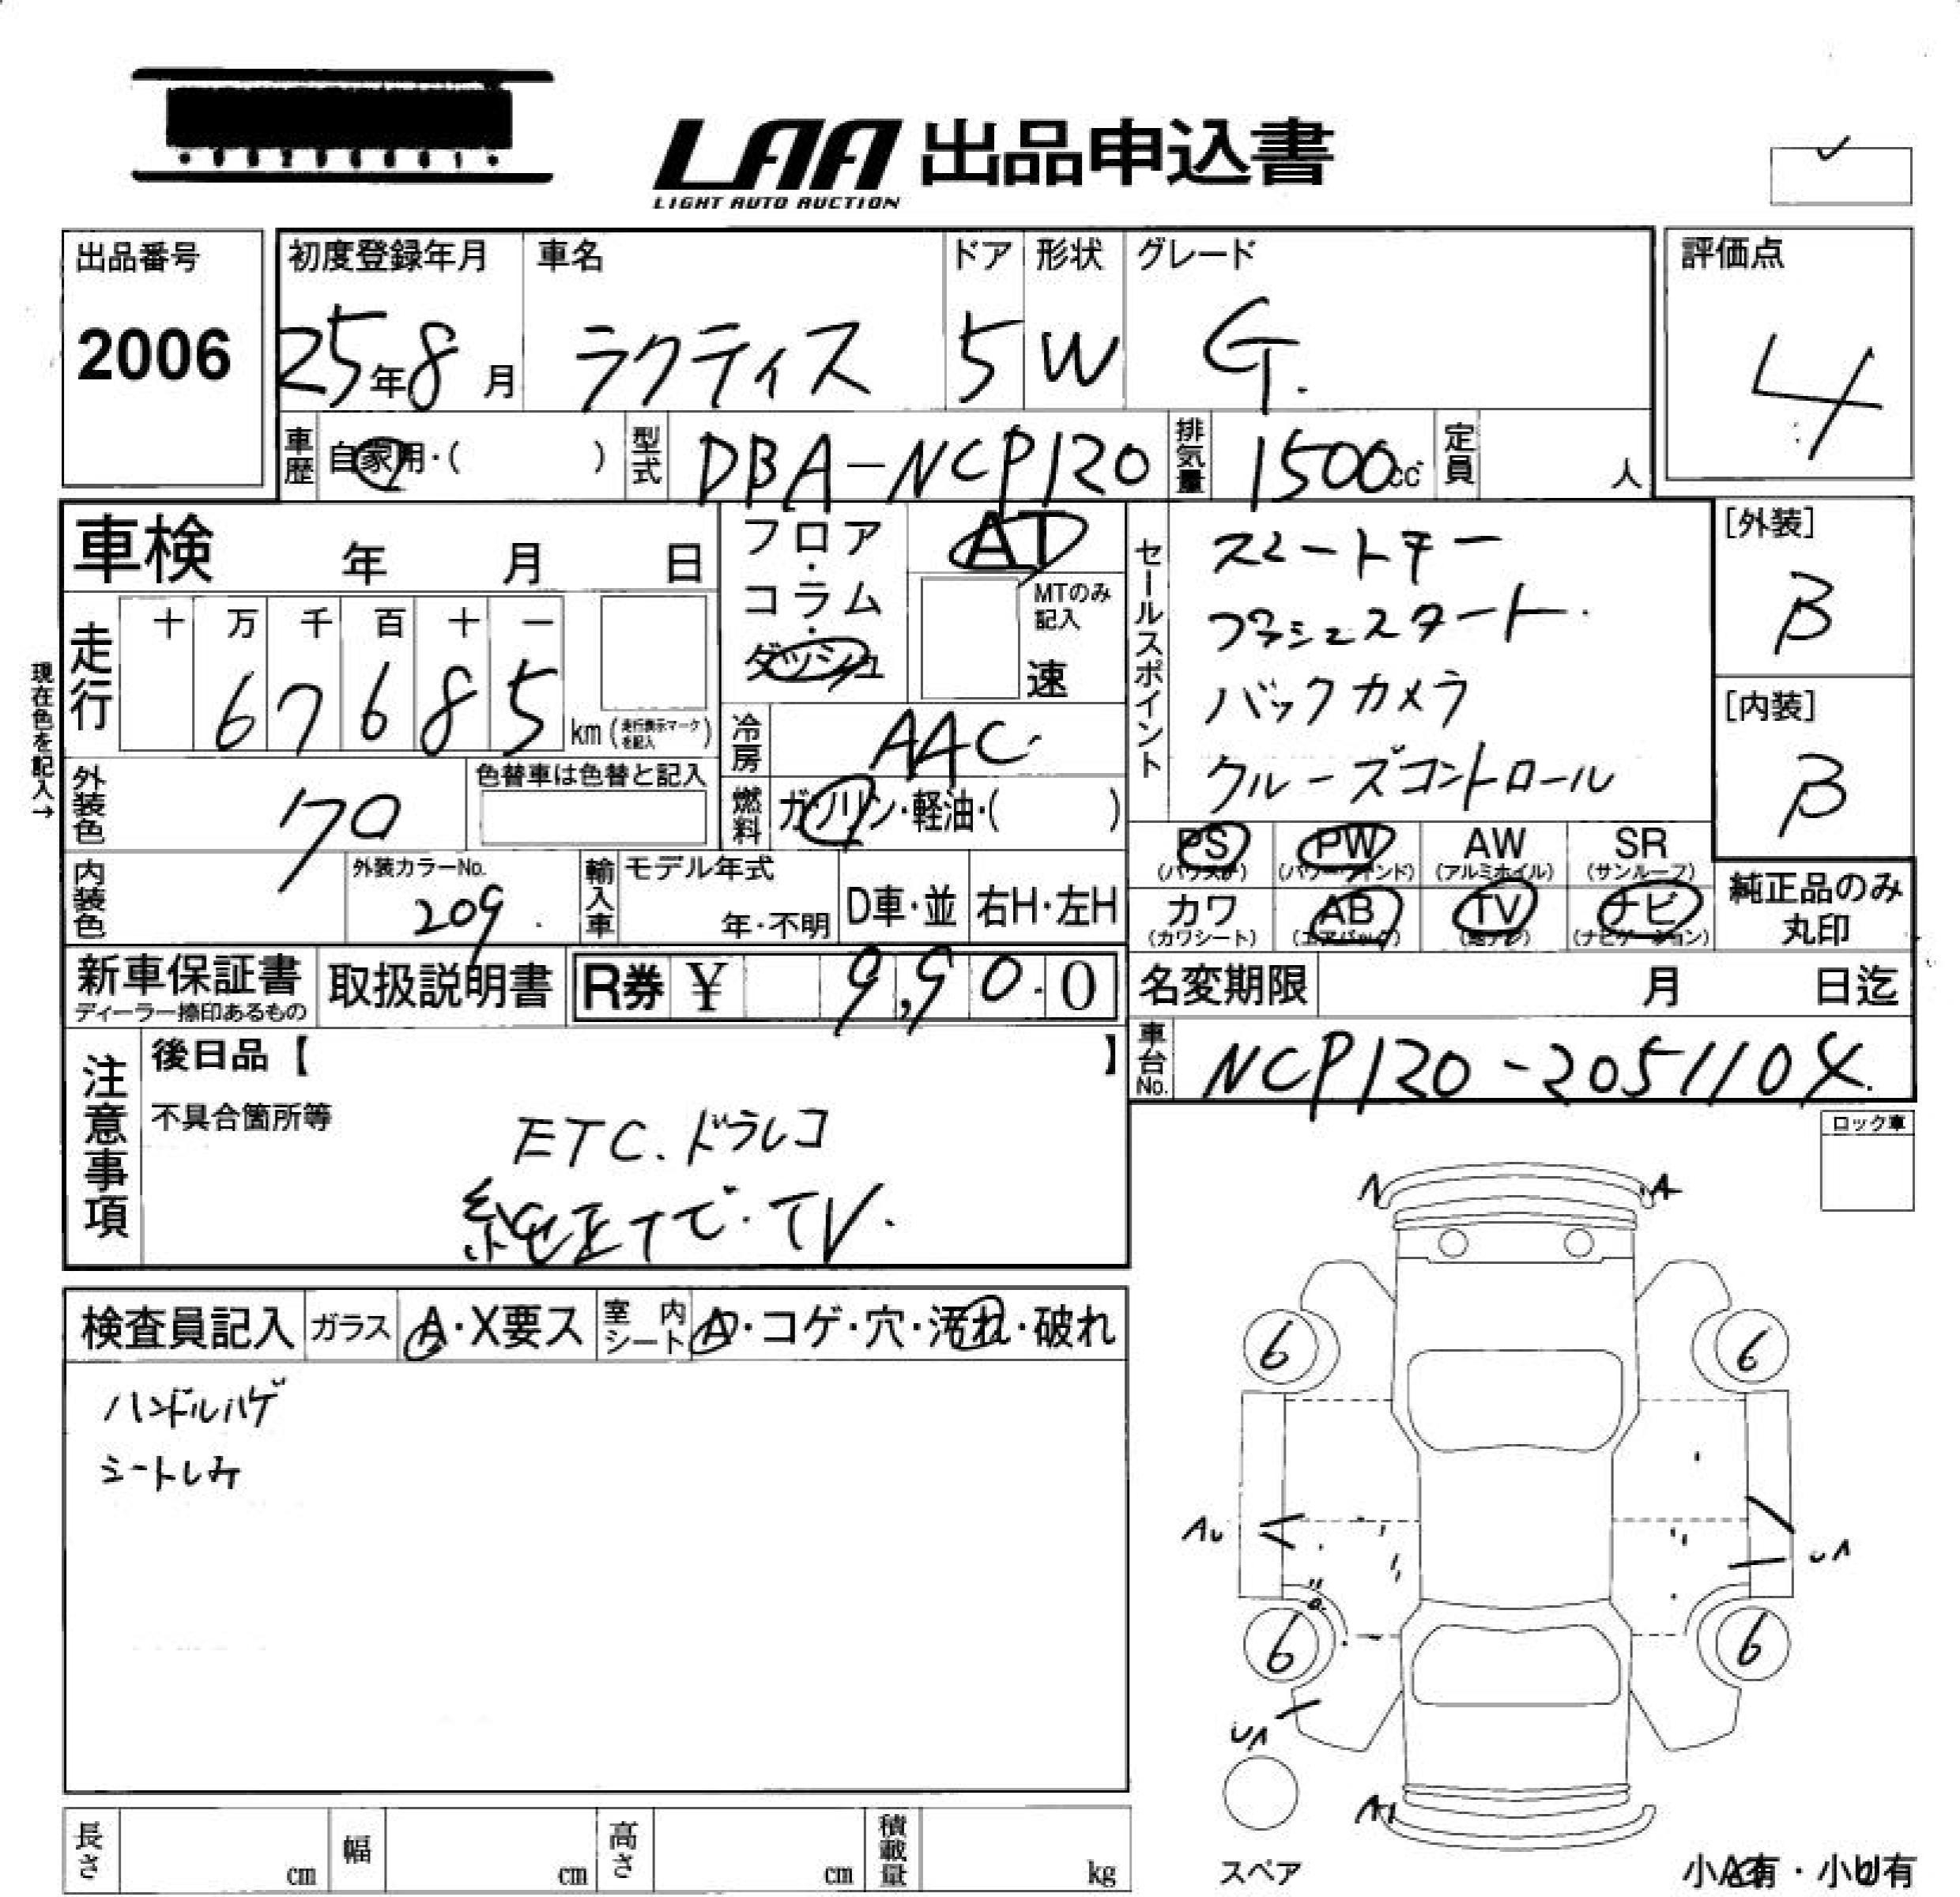 LAA 出品申込書
LIGHT AUTO AUCTION
出品番号
2006
初度登録年月
25年8月
車名
ラクティス
ドア
5
形状
W
グレード
G.
評価点
4
車歴
自家用・( )
型式
DBA-NCP120
排気量
1500cc
定員
人
車検 年 月 日
フロア・コラム・ダッシュ
AT
MTのみ記入
速
セールスポイント
スマートキー
プッシュスタート
バックカメラ
クルーズコントロール
[外装]
B
[内装]
B
現在色を記入→
走行
十 万 千 百 十 一
6 7 6 8 5
km (走行表示マークを記入)
冷房
AAC
燃料
ガソリン・軽油・( )
外装色
色替車は色替と記入
内装色
外装カラーNo.
209
輸入車
モデル年式
年・不明
D車・並
右H・左H
PS
(パワステ)
PW
(パワーウィンド)
AW
(アルミホイル)
SR
(サンルーフ)
カワ
(カワシート)
AB
(エアバック)
TV
(地デジ)
ナビ
(ナビゲーション)
純正品のみ
丸印
新車保証書
ディーラー捺印あるもの
取扱説明書
R券 ¥ 9,900
名変期限 月 日迄
車台No.
NCP120-2051104
注意事項
後日品【 】
不具合箇所等
ETC.ドラレコ
純正ナビ・TV.
ロック車
検査員記入
ガラス
A・X要ス
室内シート
A・コゲ・穴・汚れ・破れ
ハンドルハゲ
シートしみ
A
6
6
AU
UA
6
6
UA
A1
スペア
小A有・小U有
長さ
cm
幅
cm
高さ
cm
積載量
kg